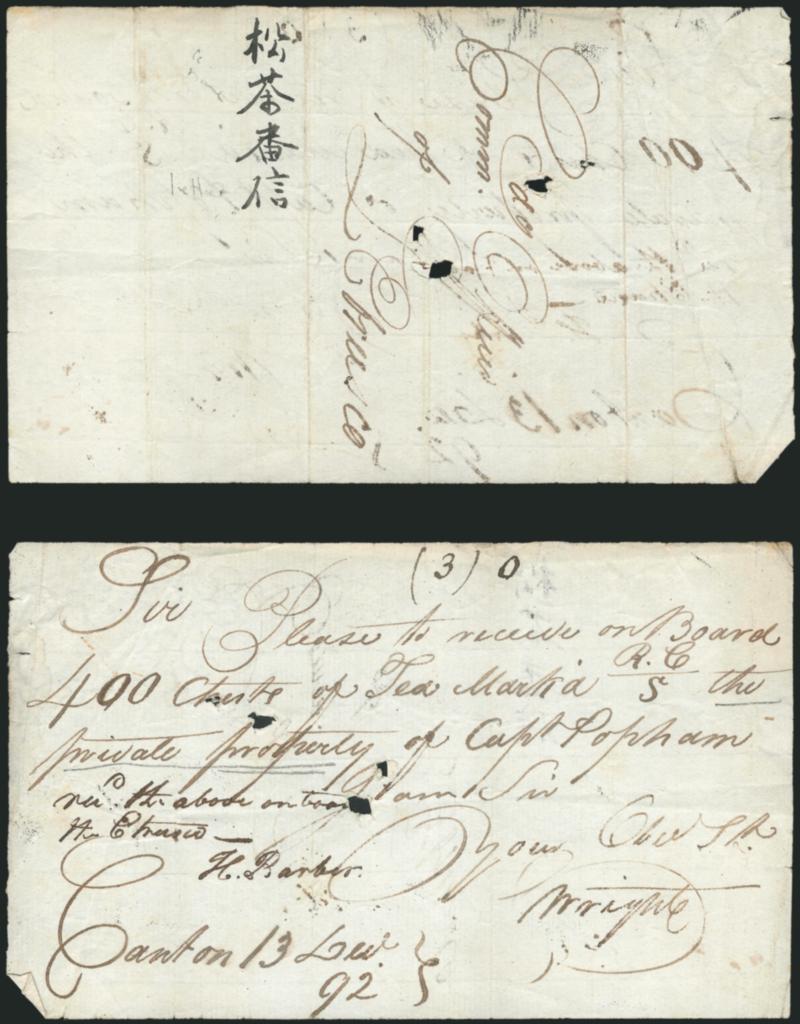 松茶番信
Comm. do
of
L'Etrusco
00
Sir
(3) 0
Please to receive on Board
400 Chests of Tea Mark'd R.C/5 the
private property of Capt Popham
rec'd the above on board
the Etrusco —
I am Sir
Your Obed St
H. Barber.
Wright
Canton 13 Dec.
92